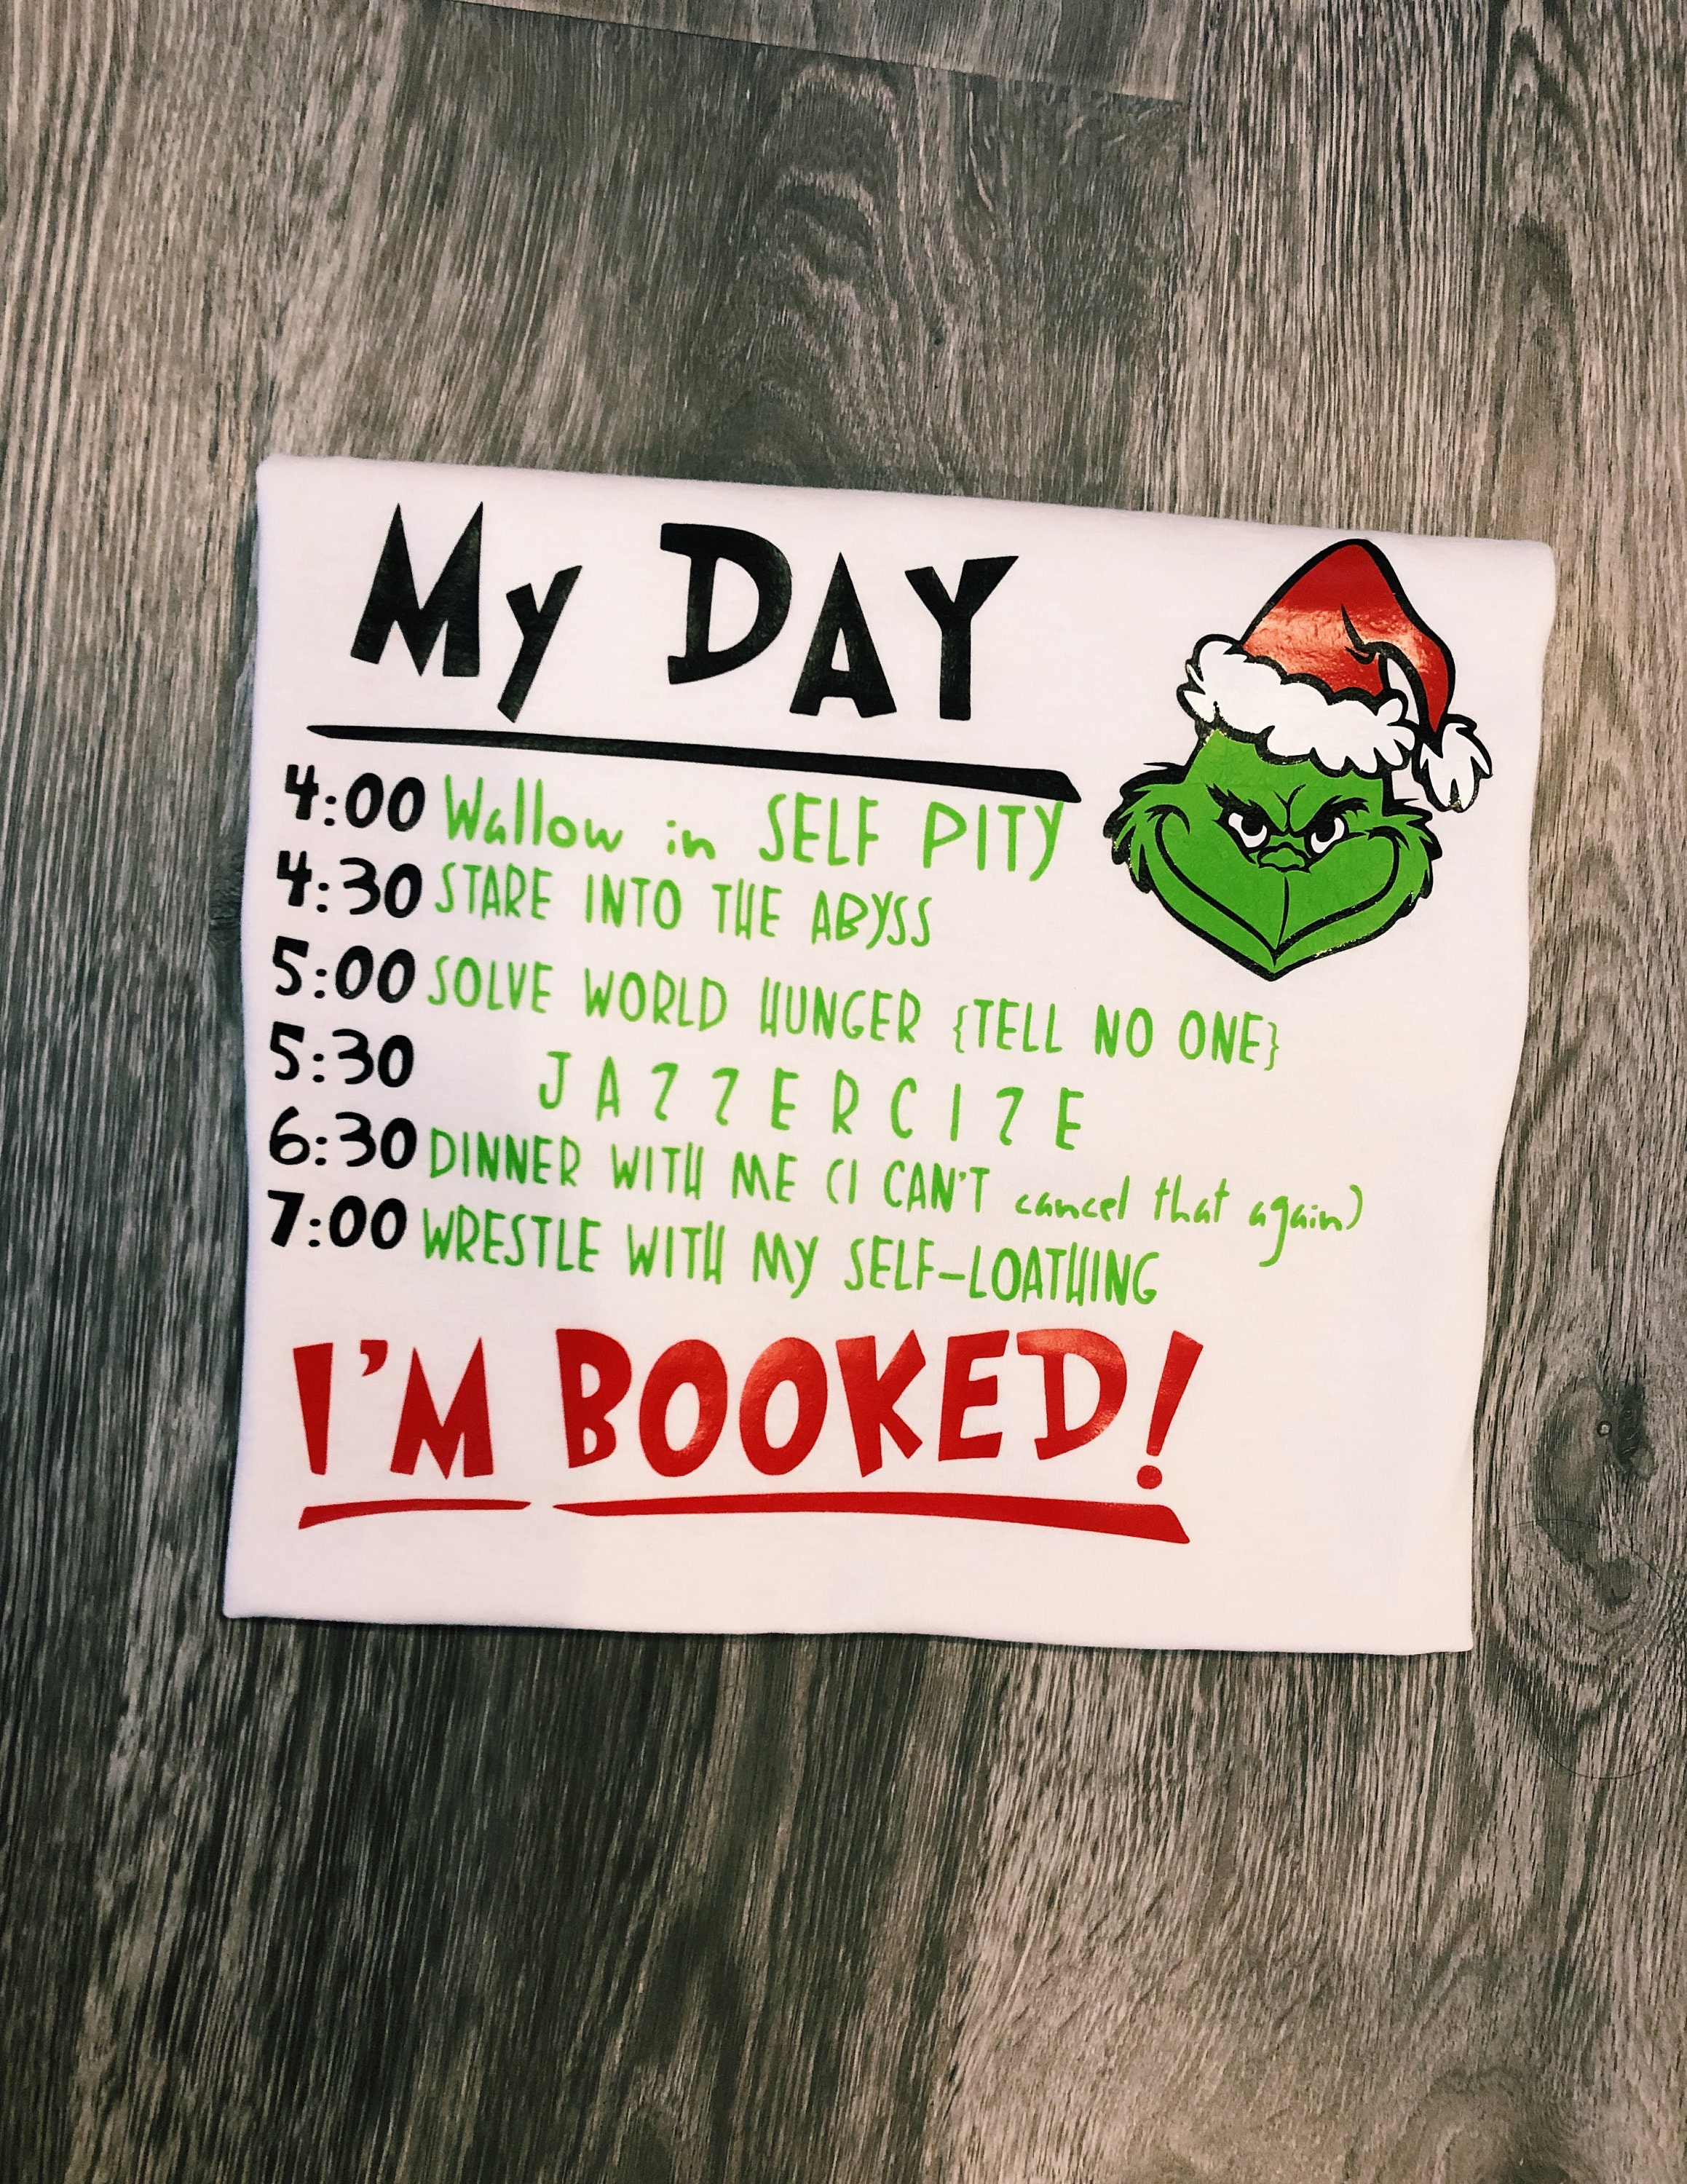 My DAY
4:00 Wallow in SELF PITY
4:30 STARE INTO THE ABYSS
5:00 SOLVE WORLD HUNGER {TELL NO ONE}
5:30 JAZZERCIZE
6:30 DINNER WITH ME (I CAN'T cancel that again)
7:00 WRESTLE WITH My SELF-LOATHING
I'M BOOKED!